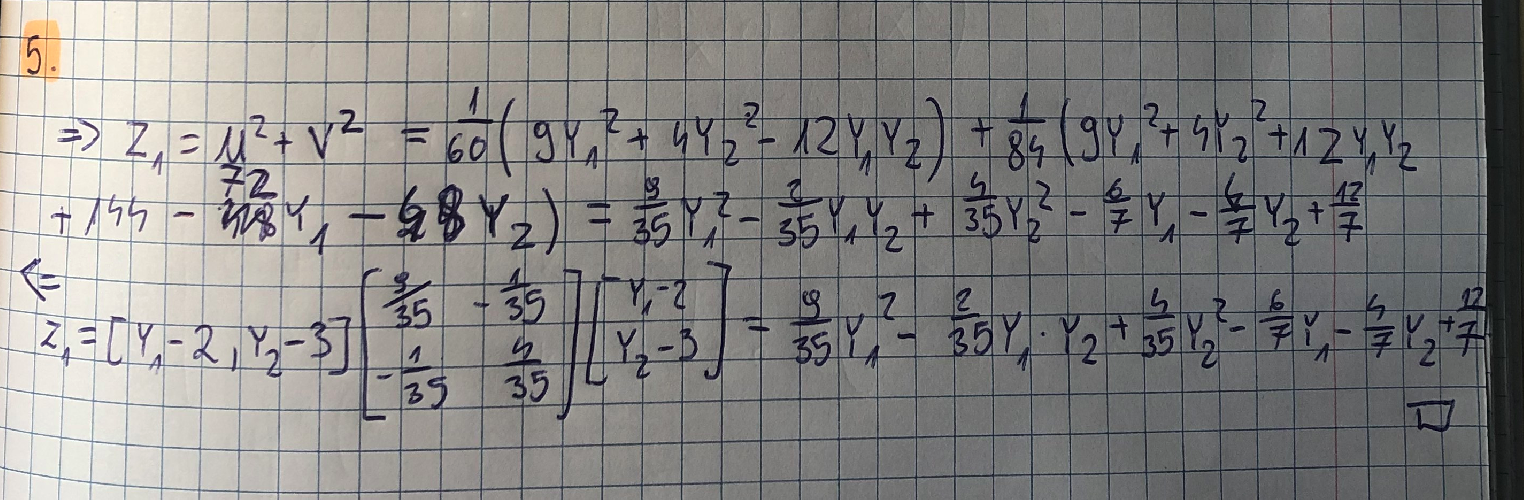 5.
=> Z₁ = u² + v² = 1/60 (9Y₁² + 4Y₂² - 12Y₁Y₂) + 1/84 (9Y₁² + 4Y₂² + 12Y₁Y₂
+ 144 - 72 Y₁ - 48 Y₂) = 9/35 Y₁² - 2/35 Y₁Y₂ + 4/35 Y₂² - 6/7 Y₁ - 4/7 Y₂ + 12/7
<=
Z₁ = [Y₁-2, Y₂-3] [9/35 -1/35; -1/35 4/35] [Y₁-2; Y₂-3] = 9/35 Y₁² - 2/35 Y₁·Y₂ + 4/35 Y₂² - 6/7 Y₁ - 4/7 Y₂ + 12/7
□